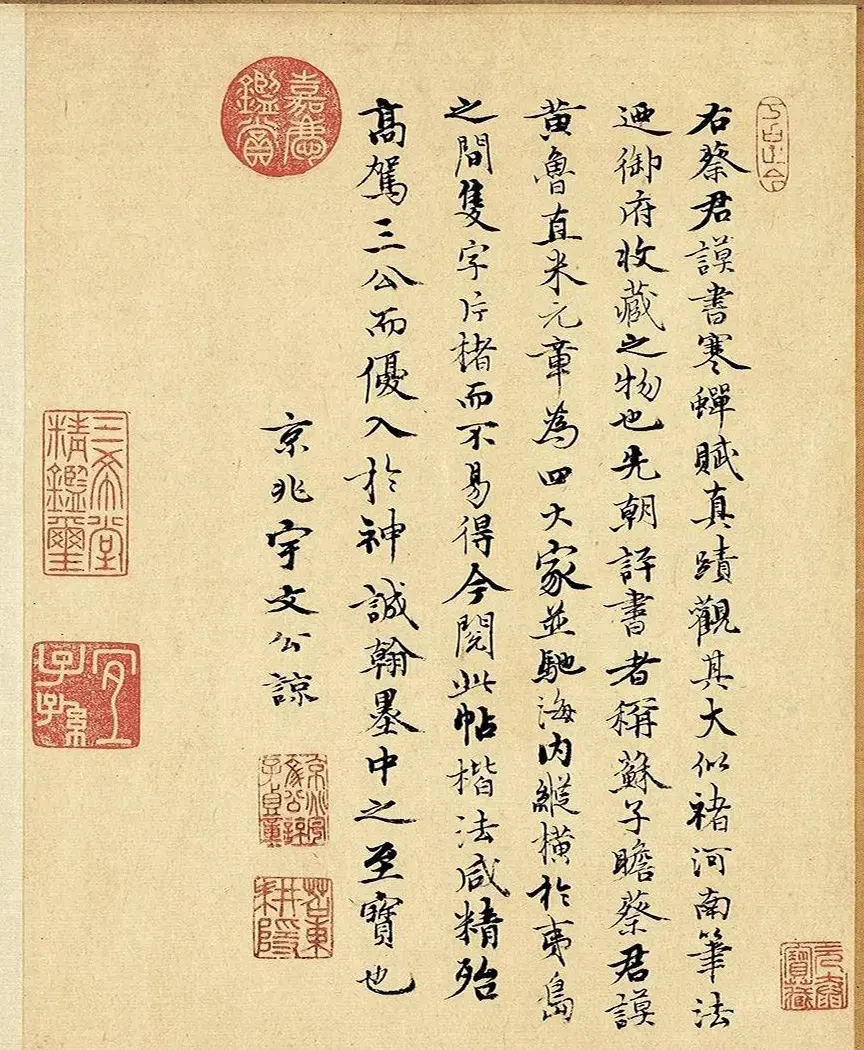 右蔡君謨書寒蟬賦真蹟觀其大似褚河南筆法
迺御府收藏之物也先朝評書者稱蘇子瞻蔡君謨
黃魯直米元章為四大家並馳海內縱橫於夷島
之間隻字片楮而不易得今閱此帖楷法咸精殆
高駕三公而優入於神誠翰墨中之至寶也
嘉慶
鑑賞
京兆宇文公諒
苕東
耕隱
三希堂
精鑑璽
宜
子孫